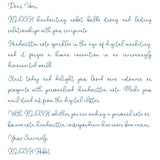 Dear User,
robot builds strong and lasting
relationships with your recipients
Handwritten note sparkles in the age of digital marketing
and it forges a human connection in an increasingly
Start today and delight your loved ones, customers or
prospects with personalized handwritten note. Make your
mail stand out from the digital clutter.
With whether you're making a personal note or
note, handwritten correspondence has never been easier.
Yours Sincerely,
Robot